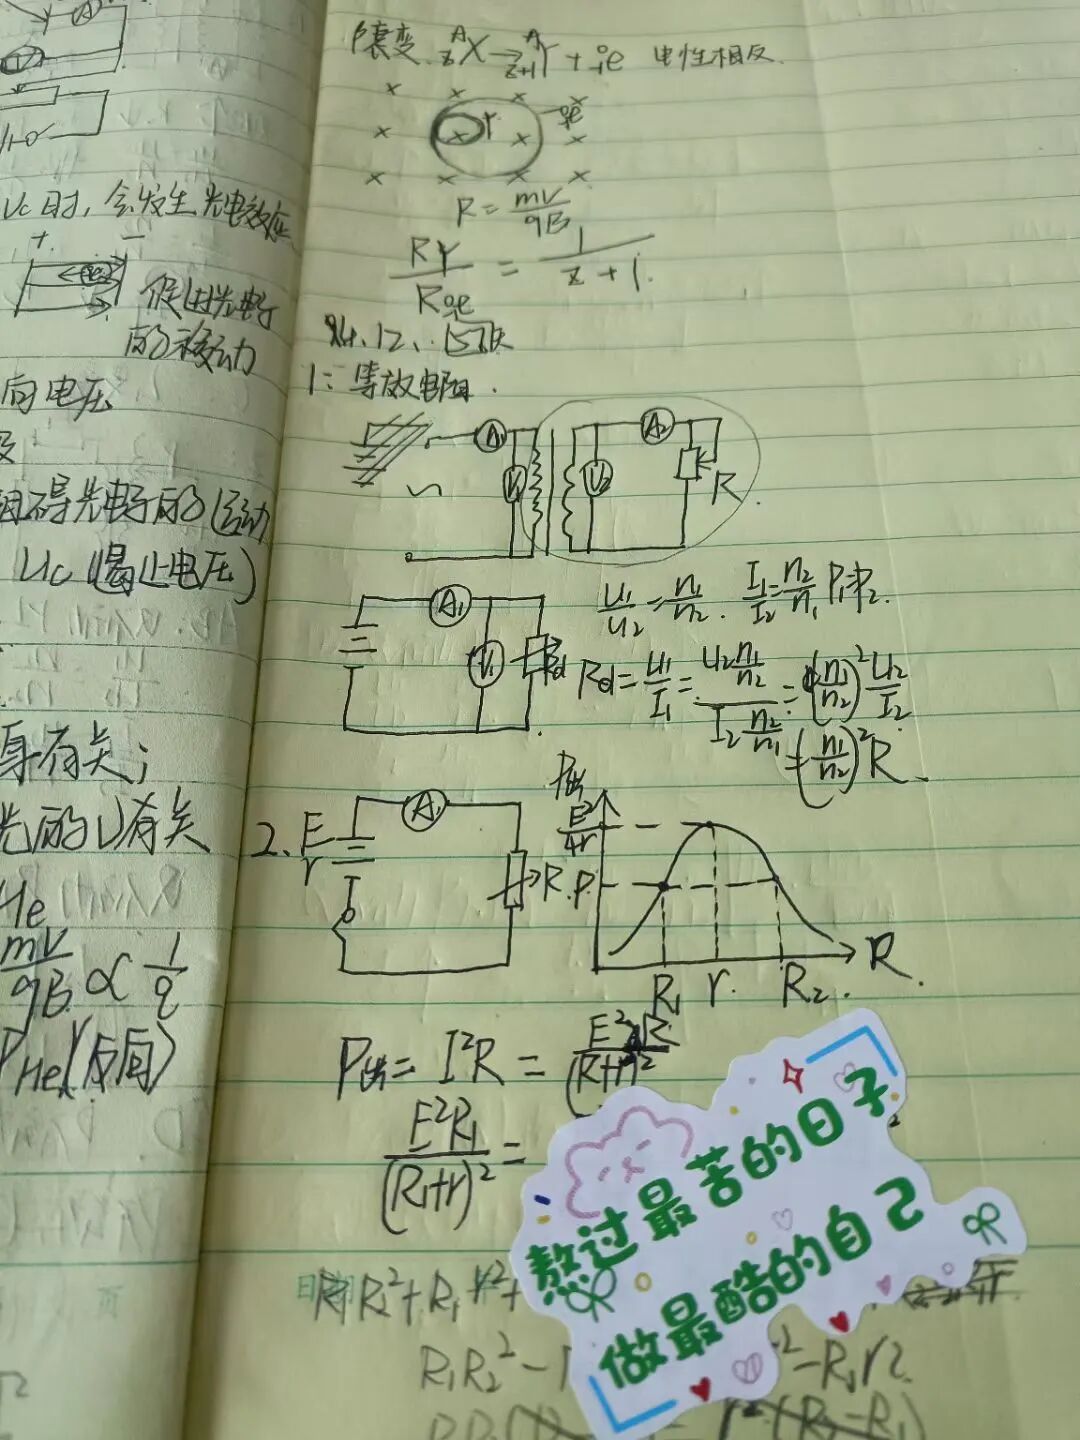 Uc时，会发生光电效应
+ -
促进光电子
的移动
向电压
阻碍光电子的运动
Uc（遏止电压）
身有关；
光的ν有关
He
mv/qB ∝ 1/q
He(反向)
β衰变 ᴬ_zX → ᴬ_{z+1}Y + ⁰₋₁e 电性相反
× × × ×
× × × ×
× × × ×
Y
R = mv/qB
R_Y/R_{0e} = 1/(z+1)
1：等效电阻．
A₁ V₁ A₂ V₂ R
A₁ V₁
U₁/U₂ = n₁/n₂． I₁/I₂ = n₂/n₁ P₁=P₂．
= U₁/I₁ = (U₂ n₁/n₂)/(I₂ n₂/n₁) = (n₁/n₂)² U₂/I₂
= (n₁/n₂)² R
2、E r A₁ R
P出
E²/4r
P
R₁ r R₂ R
P出 = I²R = E²R/(R+r)²
E²R₁/(R₁+r)² =
R₁R₂² + R₁r² +
R₁R₂² - - R₁r²
r²(R₂-R₁)
熬过最苦的日子
做最酷的自己
日期
页